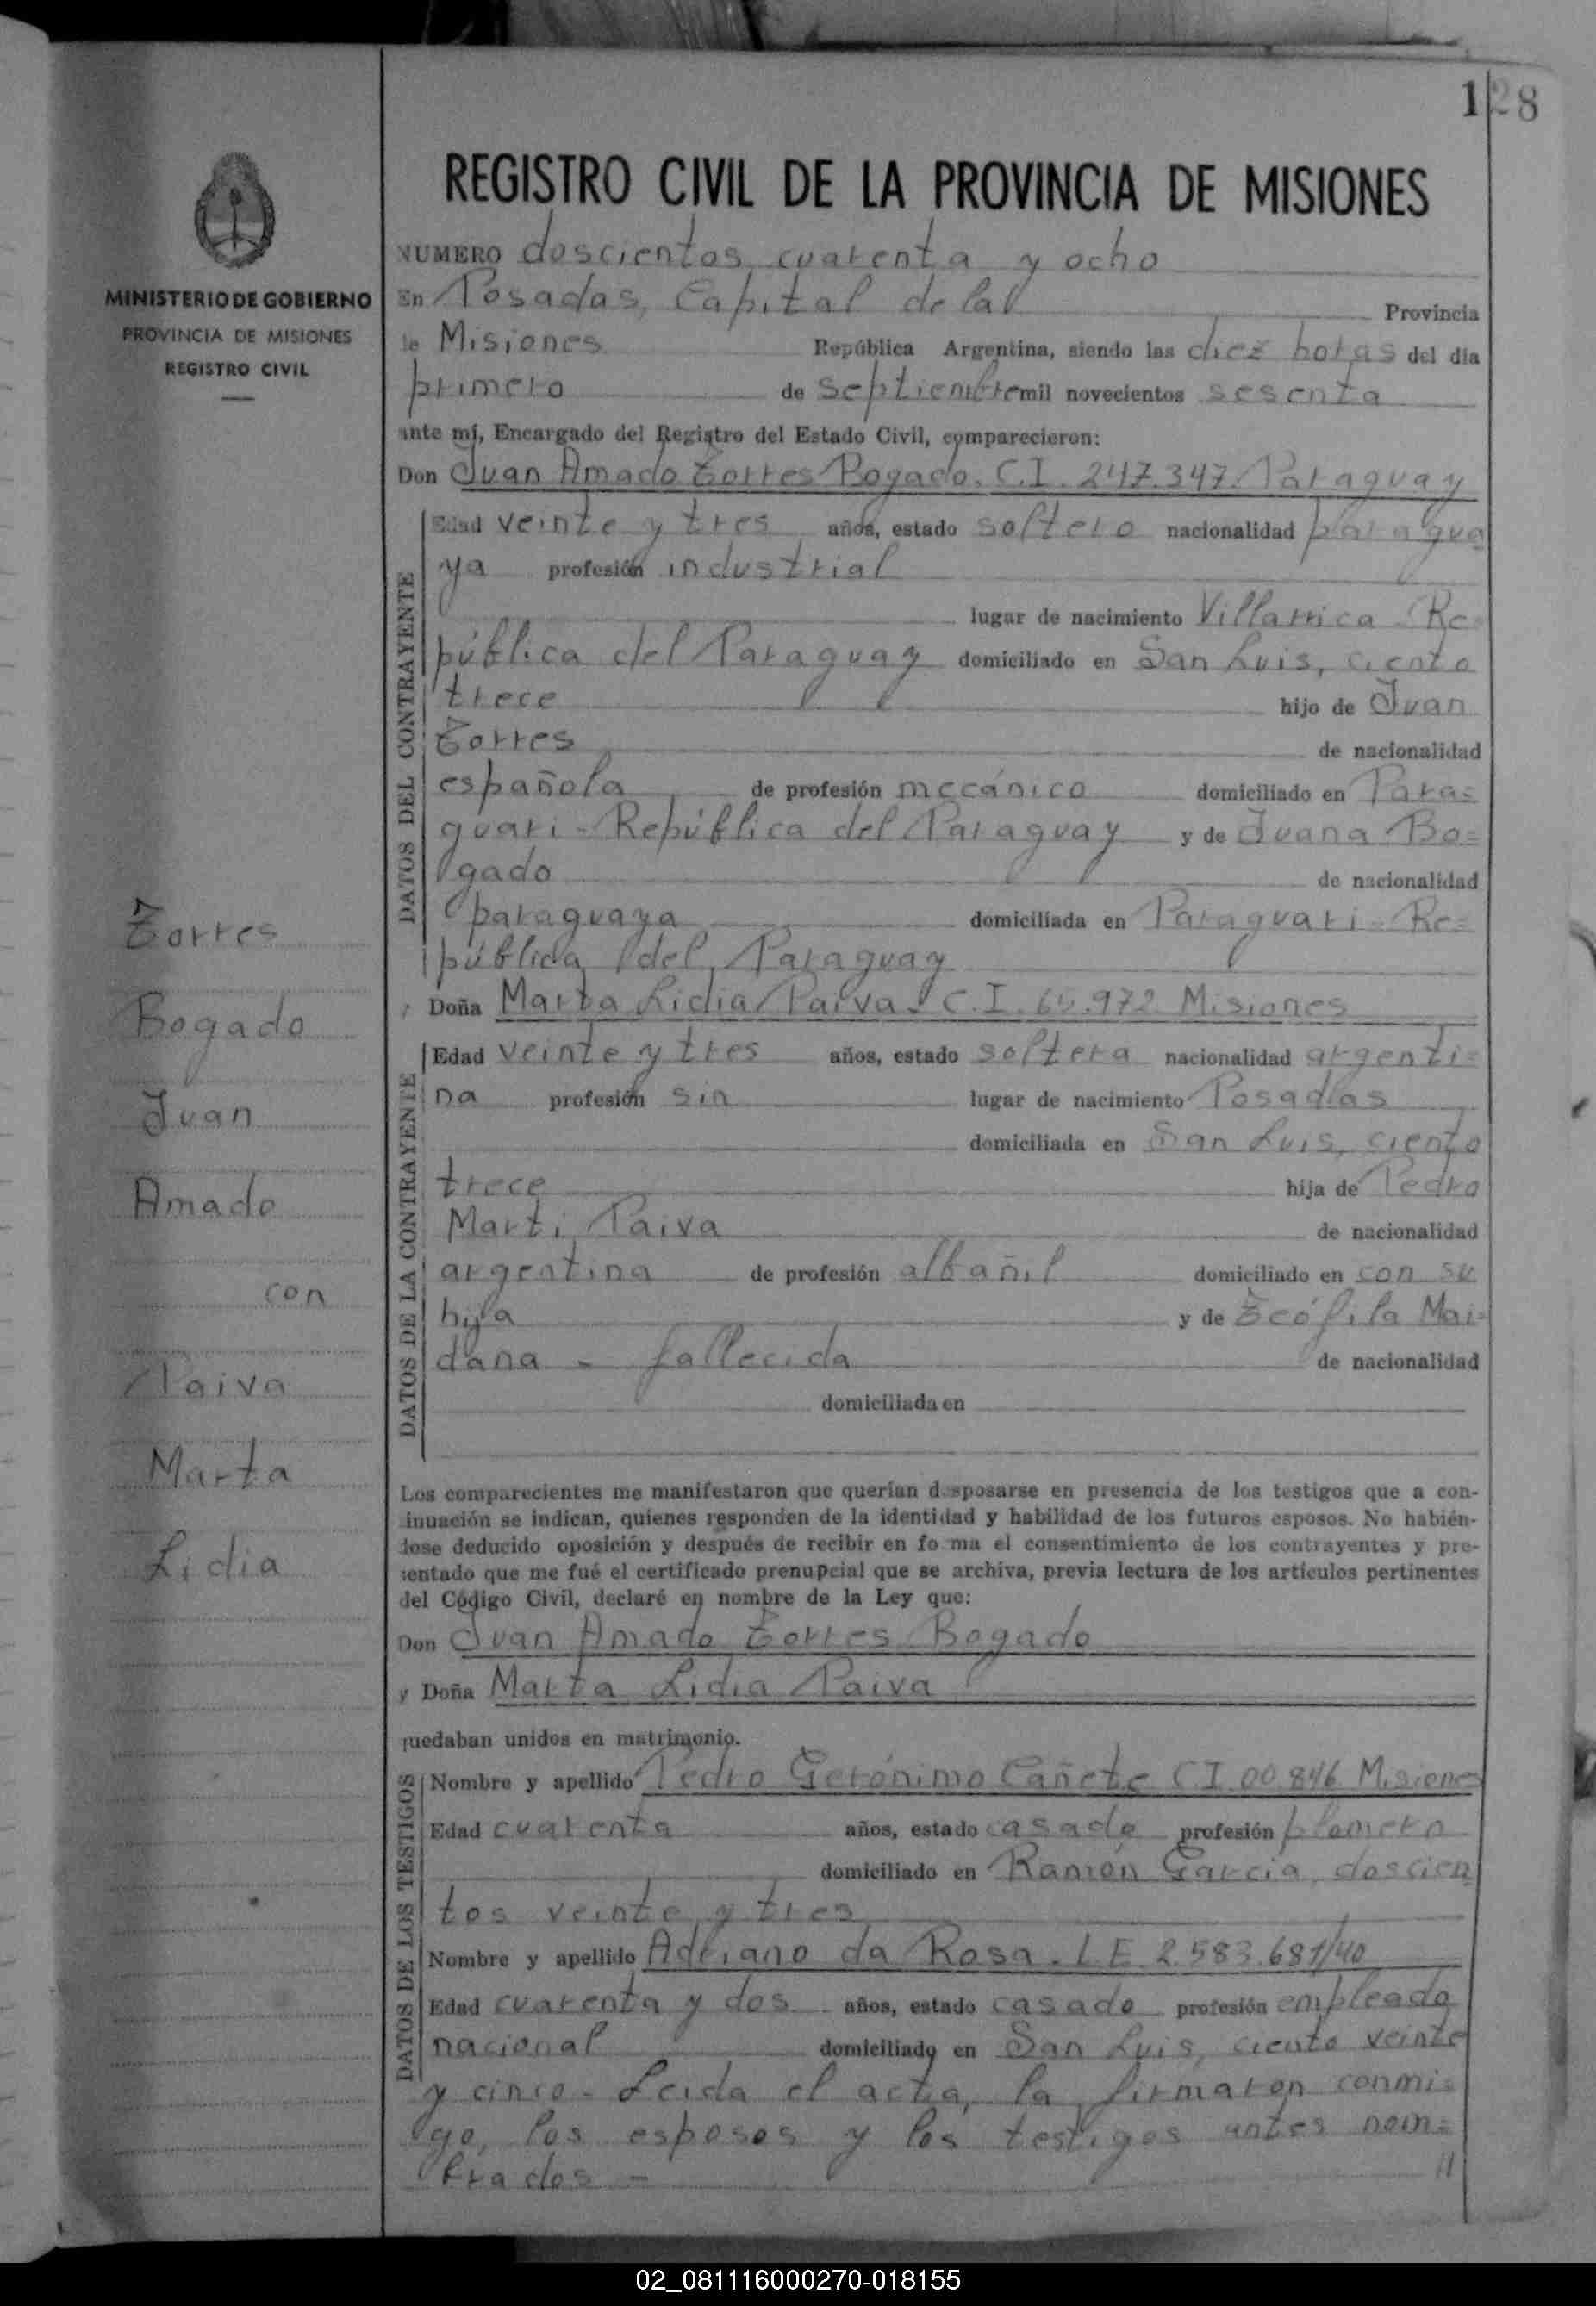 128
MINISTERIO DE GOBIERNO
PROVINCIA DE MISIONES
REGISTRO CIVIL
Torres
Bogado
Juan
Amado
con
Paiva
Marta
Lidia
REGISTRO CIVIL DE LA PROVINCIA DE MISIONES
NUMERO doscientos cuarenta y ocho
En Posadas, Capital de la Provincia
de Misiones República Argentina, siendo las diez horas del día
primero de septiembre mil novecientos sesenta
ante mí, Encargado del Registro del Estado Civil, comparecieron:
Don Juan Amado Torres Bogado. C.I. 247.347. Paraguay
DATOS DEL CONTRAYENTE
Edad veinte y tres años, estado soltero nacionalidad paragua
ya profesión industrial
lugar de nacimiento Villarrica Re=
pública del Paraguay domiciliado en San Luis, ciento
trece hijo de Juan
Torres de nacionalidad
española de profesión mecánico domiciliado en Para=
guari - República del Paraguay y de Juana Bo=
gado de nacionalidad
paraguaya domiciliada en Paraguari - Re=
pública del Paraguay
y Doña Marta Lidia Paiva. C.I. 65.972 Misiones
DATOS DE LA CONTRAYENTE
Edad veinte y tres años, estado soltera nacionalidad argenti=
na profesión sin lugar de nacimiento Posadas
domiciliada en San Luis, ciento
trece hija de Pedro
Marti Paiva de nacionalidad
argentina de profesión albañil domiciliado en con su
hija y de Teófila Mai=
dana - fallecida de nacionalidad
domiciliada en
Los comparecientes me manifestaron que querían desposarse en presencia de los testigos que a con-
tinuación se indican, quienes responden de la identidad y habilidad de los futuros esposos. No habién-
dose deducido oposición y después de recibir en fo ma el consentimiento de los contrayentes y pre-
sentado que me fué el certificado prenupcial que se archiva, previa lectura de los artículos pertinentes
del Código Civil, declaré en nombre de la Ley que:
Don Juan Amado Torres Bogado
y Doña Marta Lidia Paiva
quedaban unidos en matrimonio.
DATOS DE LOS TESTIGOS
Nombre y apellido Pedro Gerónimo Cañete C.I. 00.846 Misiones
Edad cuarenta años, estado casado profesión plomero
domiciliado en Ramón García, doscien
tos veinte y tres
Nombre y apellido Adriano da Rosa. L.E. 2.583.681/40
Edad cuarenta y dos años, estado casado profesión empleado
nacional domiciliado en San Luis, ciento veinte
y cinco - Leida el acta, la firmaron conmi=
go, los esposos y los testigos antes nom=
brados - //
02_081116000270-018155